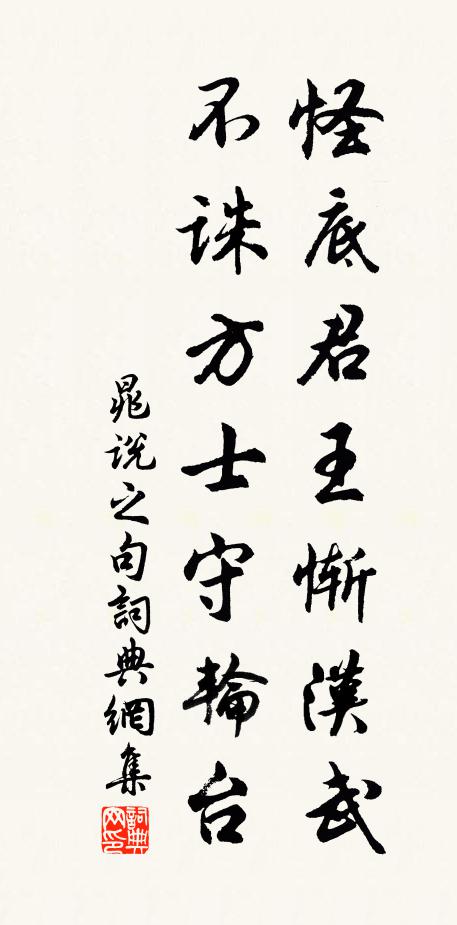 怪底君王慚漢武
不誅方士守輪台
晁说之句詞典網集
詞典网印